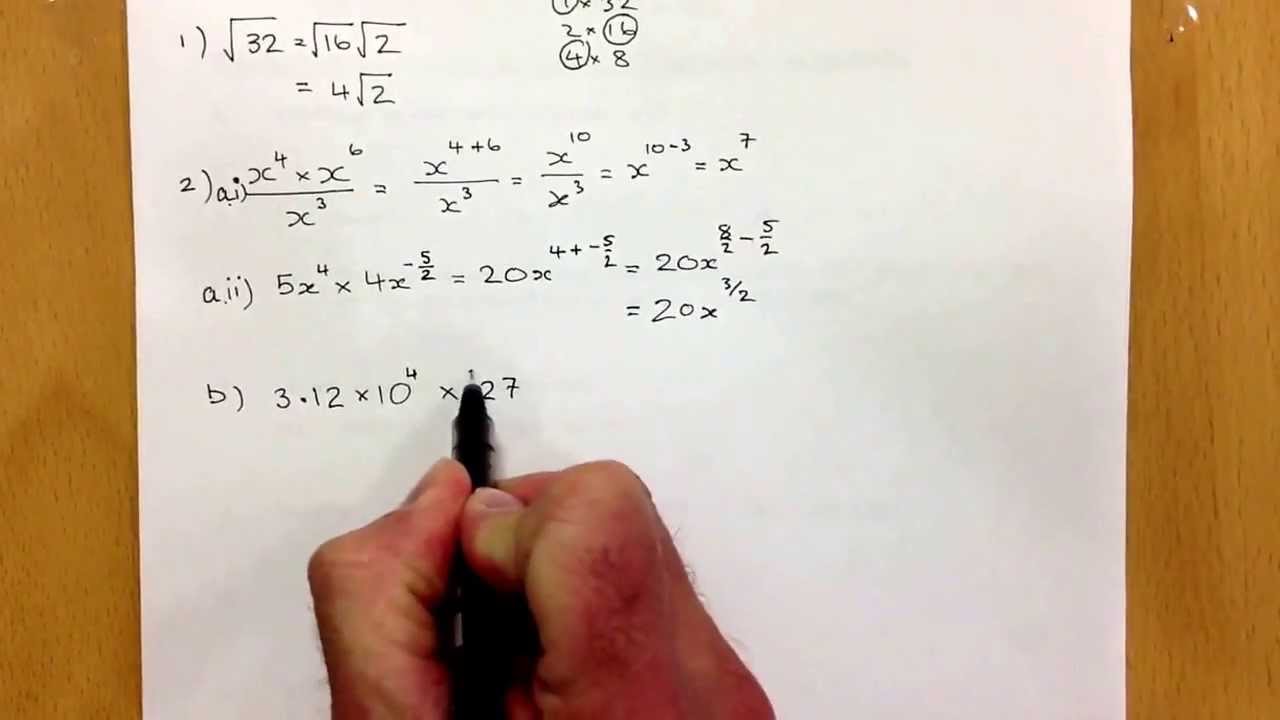 1 × 32
1) √32 = √16 √2
2 × 16
4 × 8
= 4√2
2) a.i) x⁴ × x⁶ / x³ = x⁴⁺⁶ / x³ = x¹⁰ / x³ = x¹⁰⁻³ = x⁷
a.ii) 5x⁴ × 4x^(-5/2) = 20x^(4 + -5/2) = 20x^(8/2 - 5/2)
= 20x^(3/2)
b) 3.12 × 10⁴ × 27